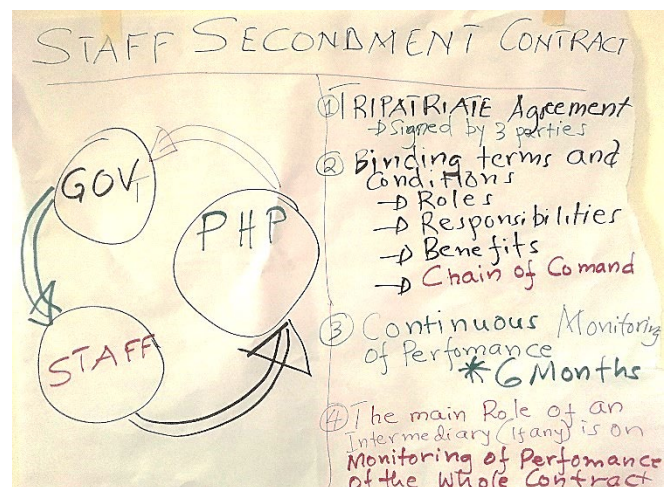 STAFF SECONDMENT CONTRACT
GOVT
PHP
STAFF
① TRIPATRIATE Agreement
→ Signed by 3 parties
② Binding terms and
Conditions
→ Roles
→ Responsibilities
→ Benefits
→ Chain of Comand
③ Continuous Monitoring
of Perfomance
* 6 Months
④ The main Role of an
Intermediary (If any) is on
Monitoring of Perfomance
of the Whole Contract